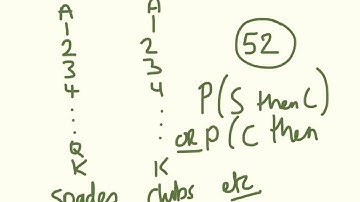 A A
1 1
2 2 52
3 3
4 4 P(S then C)
: :
: : OR P(C then
Q
K K
Spades clubs etc